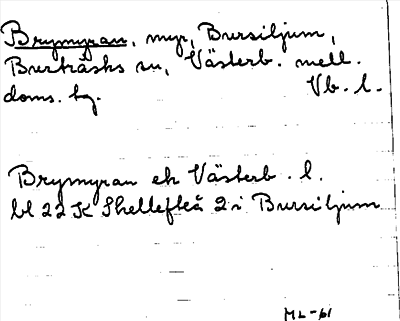 Brymyran, myr, Bursiljum,
Burträsks sn, Västerb. mell.
doms. hg. Vb. l.
Brymyran ek Västerb. l.
bl 22 K Skellefteå 2 i Bursiljum
ML-61